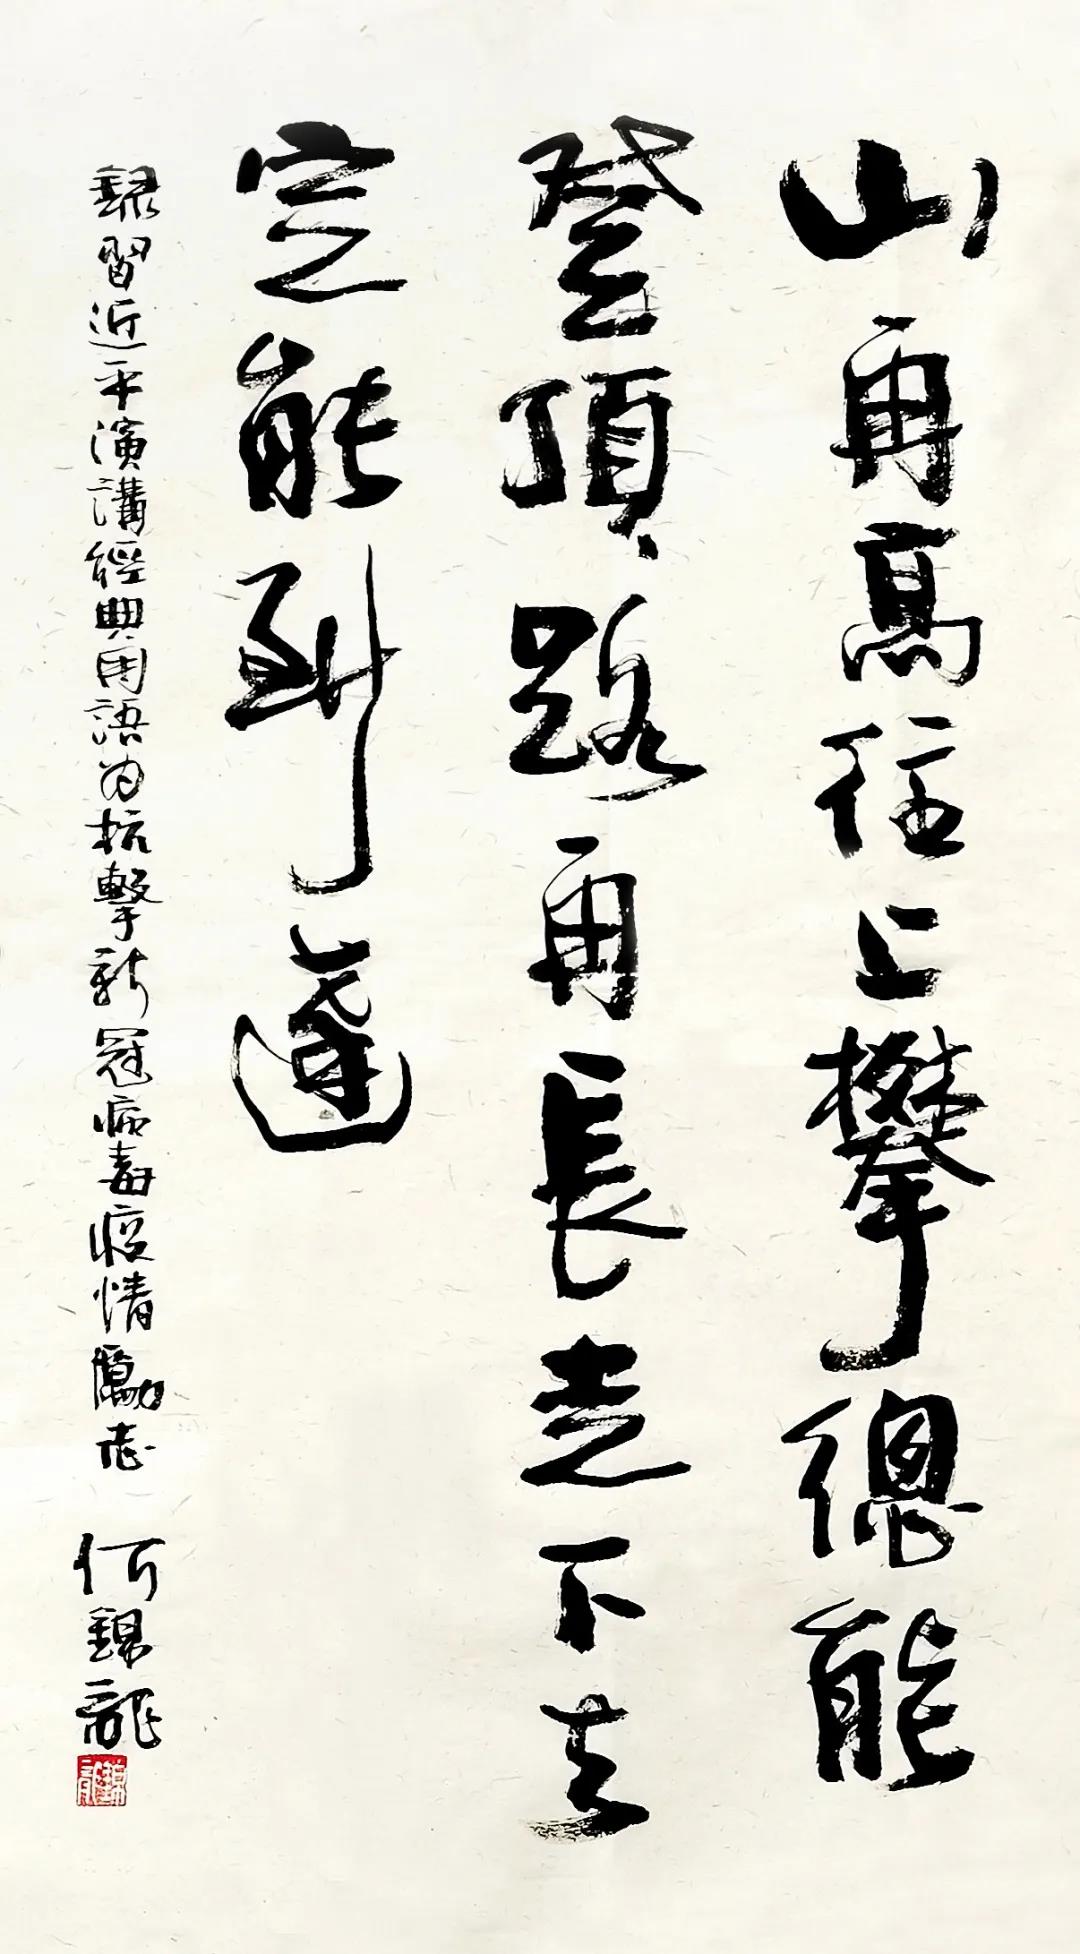 山再高往上攀總能
登頂路再長走下去
定能到達
錄習近平演講經典用語為抗擊新冠病毒疫情勵志
何錦龍
錦龍